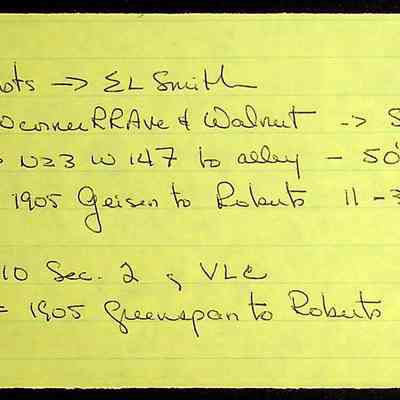 ots → EL Smith
O corner RR Ave & Walnut -> S
N23 W 147 to alley - 50'
1905 Geisen to Roberts 11-3
10 Sec. 2 of VLC
= 1905 Greenspan to Roberts